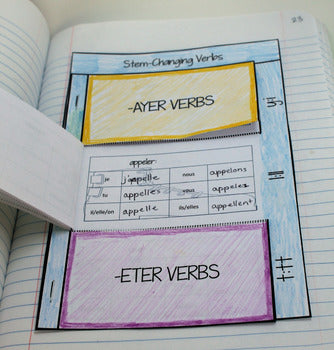 23
Stem-Changing Verbs
-AYER VERBS
y:i
appeler:
je j'appelle nous appelons
tu appelles vous appelez
il/elle/on appelle ils/elles appellent
l:ll
-ETER VERBS
t:tt